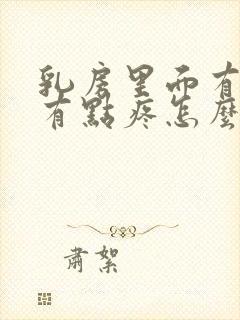 乳房里而有
有點疼怎麼
肅絮